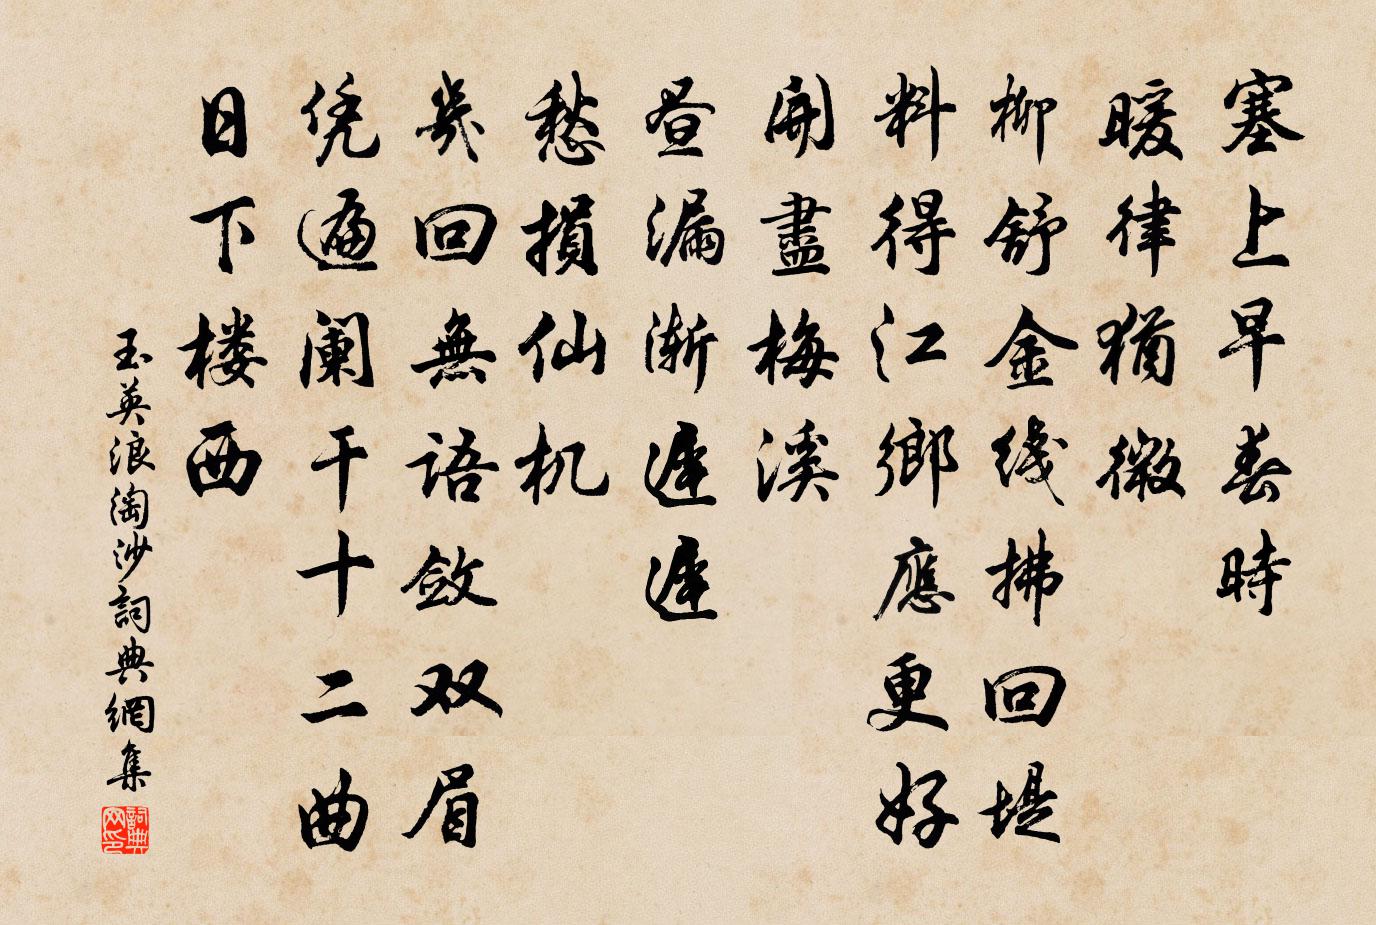 塞上早春時
暖律猶微
柳舒金线拂回堤
料得江鄉應更好
開盡梅溪
昼漏渐遲遲
愁損仙机
幾回無語敛双眉
凭遍阑干十二曲
日下楼西
玉英浪淘沙詞典網集
詞典网印